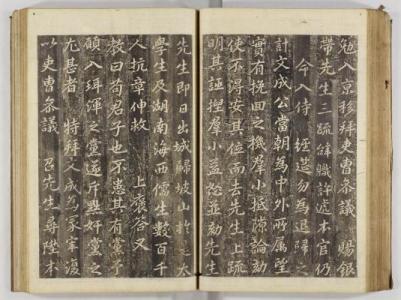 勉入京移拜吏曹參議 賜銀
帶先生三疏辭職許遞本官仍
命入侍 經筵勿為退歸之
計文成公當朝為中外所屬望
實有挽回之機羣小抵隙論劾
使不得安其位而去先生上疏
明其誣捏羣小益忿並劾先生
先生即日出城歸坡山於是太
學生及湖南海西儒生數百千
人抗章伸救 上褒答又
教曰苟君子也不患其有黨予
願入珥渾之黨遠斥黜奸黨之
尤甚者 特拜文成為冢宰復
以吏曹參議 召先生尋陞本